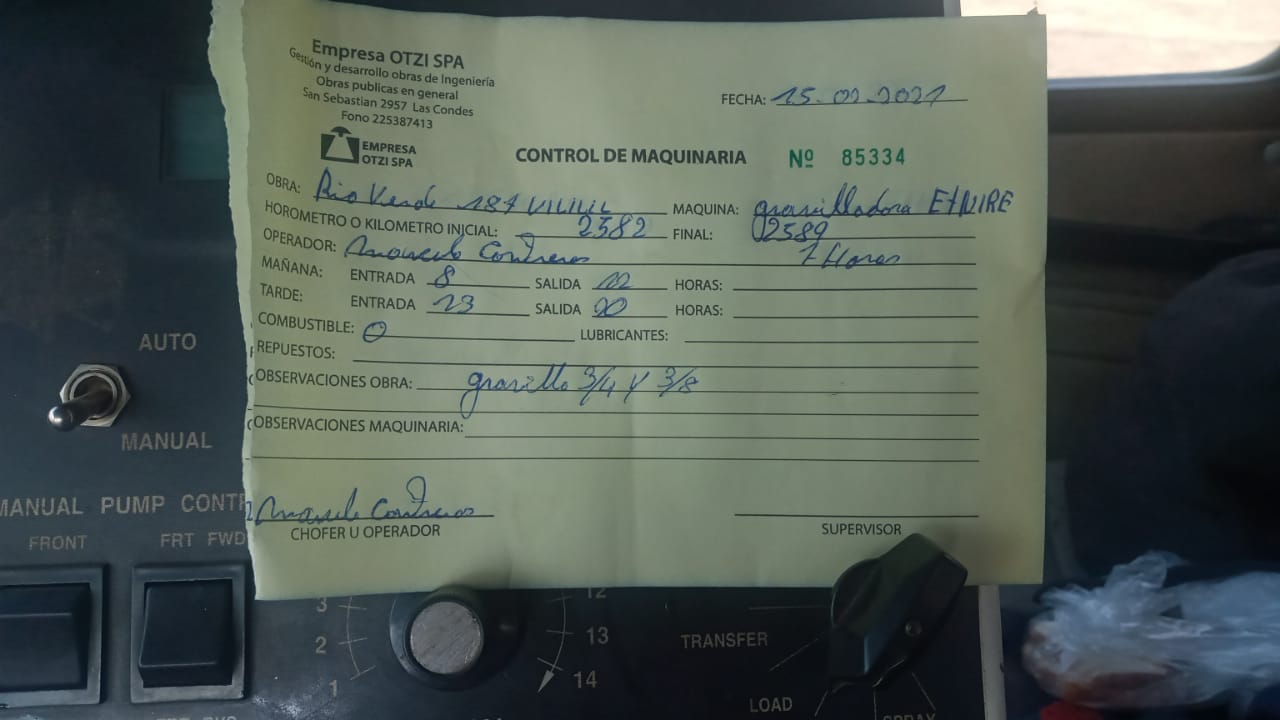 Empresa OTZI SPA
Gestión y desarrollo obras de Ingeniería
Obras publicas en general
San Sebastian 2957 Las Condes
Fono 225387413
EMPRESA
OTZI SPA
FECHA: 15.02.2021
CONTROL DE MAQUINARIA Nº 85334
OBRA: Rio Verde MAQUINA: gravilladora ETNIRE
HOROMETRO O KILOMETRO INICIAL: 2582 FINAL: 02589
OPERADOR: Marcelo Contreras 7 Horas
MAÑANA: ENTRADA 8 SALIDA 12 HORAS:
TARDE: ENTRADA 13 SALIDA 20 HORAS:
COMBUSTIBLE: 0 LUBRICANTES:
REPUESTOS:
OBSERVACIONES OBRA: gravilla 3/4 y 3/8
OBSERVACIONES MAQUINARIA:
Marcelo Contreras
CHOFER U OPERADOR SUPERVISOR
AUTO
MANUAL
MANUAL PUMP CONTR
FRONT FRT FWD
3 12
2 13
1 14
TRANSFER
LOAD
SPRAY